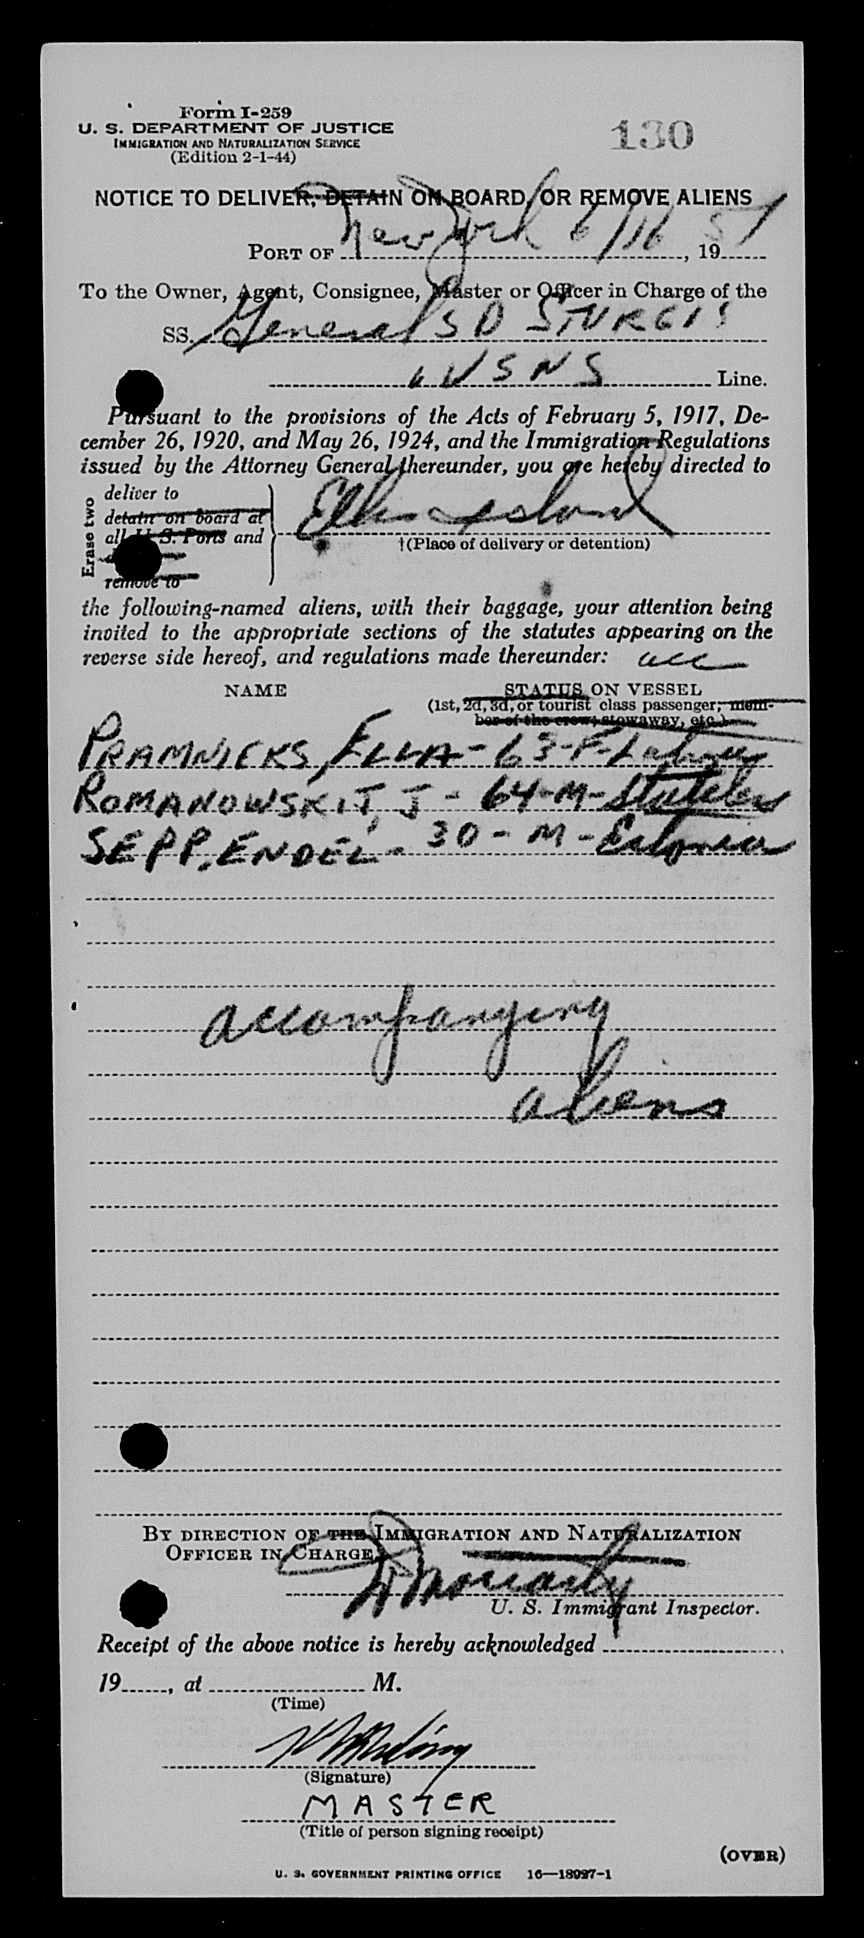 Form I-259
U. S. DEPARTMENT OF JUSTICE
IMMIGRATION AND NATURALIZATION SERVICE
(Edition 2-1-44)
130
NOTICE TO DELIVER, DETAIN ON BOARD, OR REMOVE ALIENS
PORT OF New York 6/16, 1951
To the Owner, Agent, Consignee, Master or Officer in Charge of the
SS. General S D STURGIS
USNS Line.
Pursuant to the provisions of the Acts of February 5, 1917, De-
cember 26, 1920, and May 26, 1924, and the Immigration Regulations
issued by the Attorney General thereunder, you are hereby directed to
Erase two
deliver to
detain on board at
all U. S. Ports and
remove to
Ellis Island
†(Place of delivery or detention)
the following-named aliens, with their baggage, your attention being
invited to the appropriate sections of the statutes appearing on the
reverse side hereof, and regulations made thereunder:
NAME STATUS ON VESSEL
(1st, 2d, 3d, or tourist class passenger, mem-
ber of the crew, stowaway, etc.)
PRAMNIEKS, ELLA - 63 - F -
ROMANOWSKIJ, J - 64 - M - Stateless
SEPP, ENDEL - 30 - M - Estonia
accompanying
aliens
BY DIRECTION OF THE IMMIGRATION AND NATURALIZATION
OFFICER IN CHARGE,
Moriarty
U. S. Immigrant Inspector.
Receipt of the above notice is hereby acknowledged
19, at M.
(Time)
(Signature)
MASTER
(Title of person signing receipt)
(OVER)
U. S. GOVERNMENT PRINTING OFFICE 16—18027-1